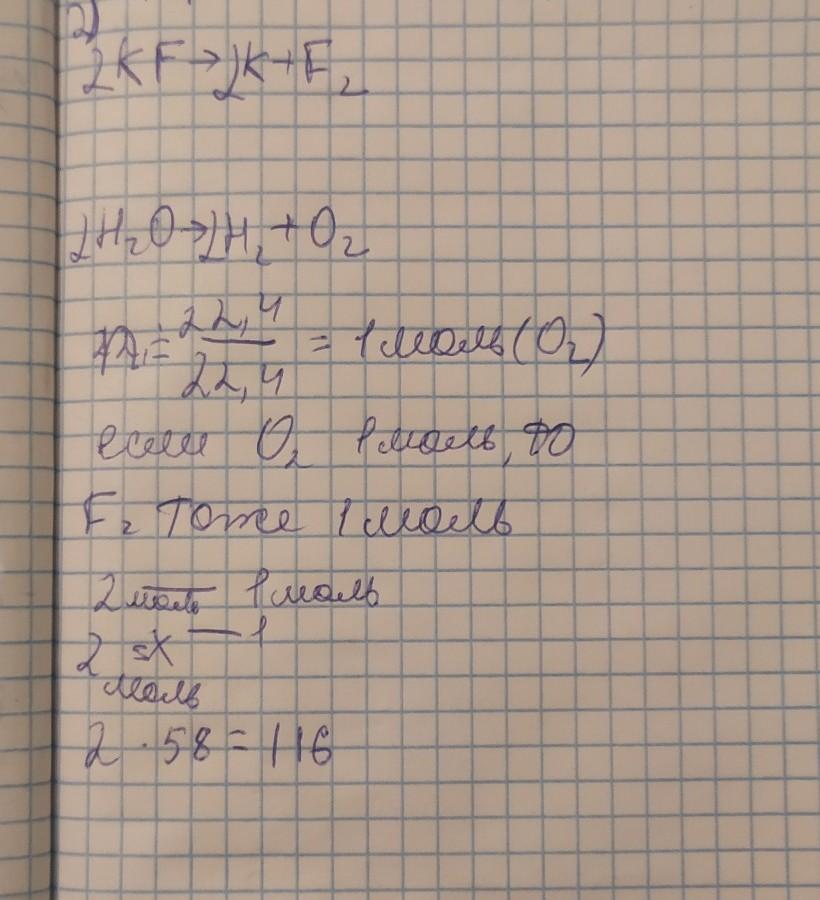 2)
2KF→2K+F₂
2H₂O→2H₂+O₂
n₁=22,4/22,4 = 1моль(O₂)
если O₂ 1моль, то
F₂ тоже 1моль
2моль — 1моль
2=X — 1
моль
2 · 58 = 116